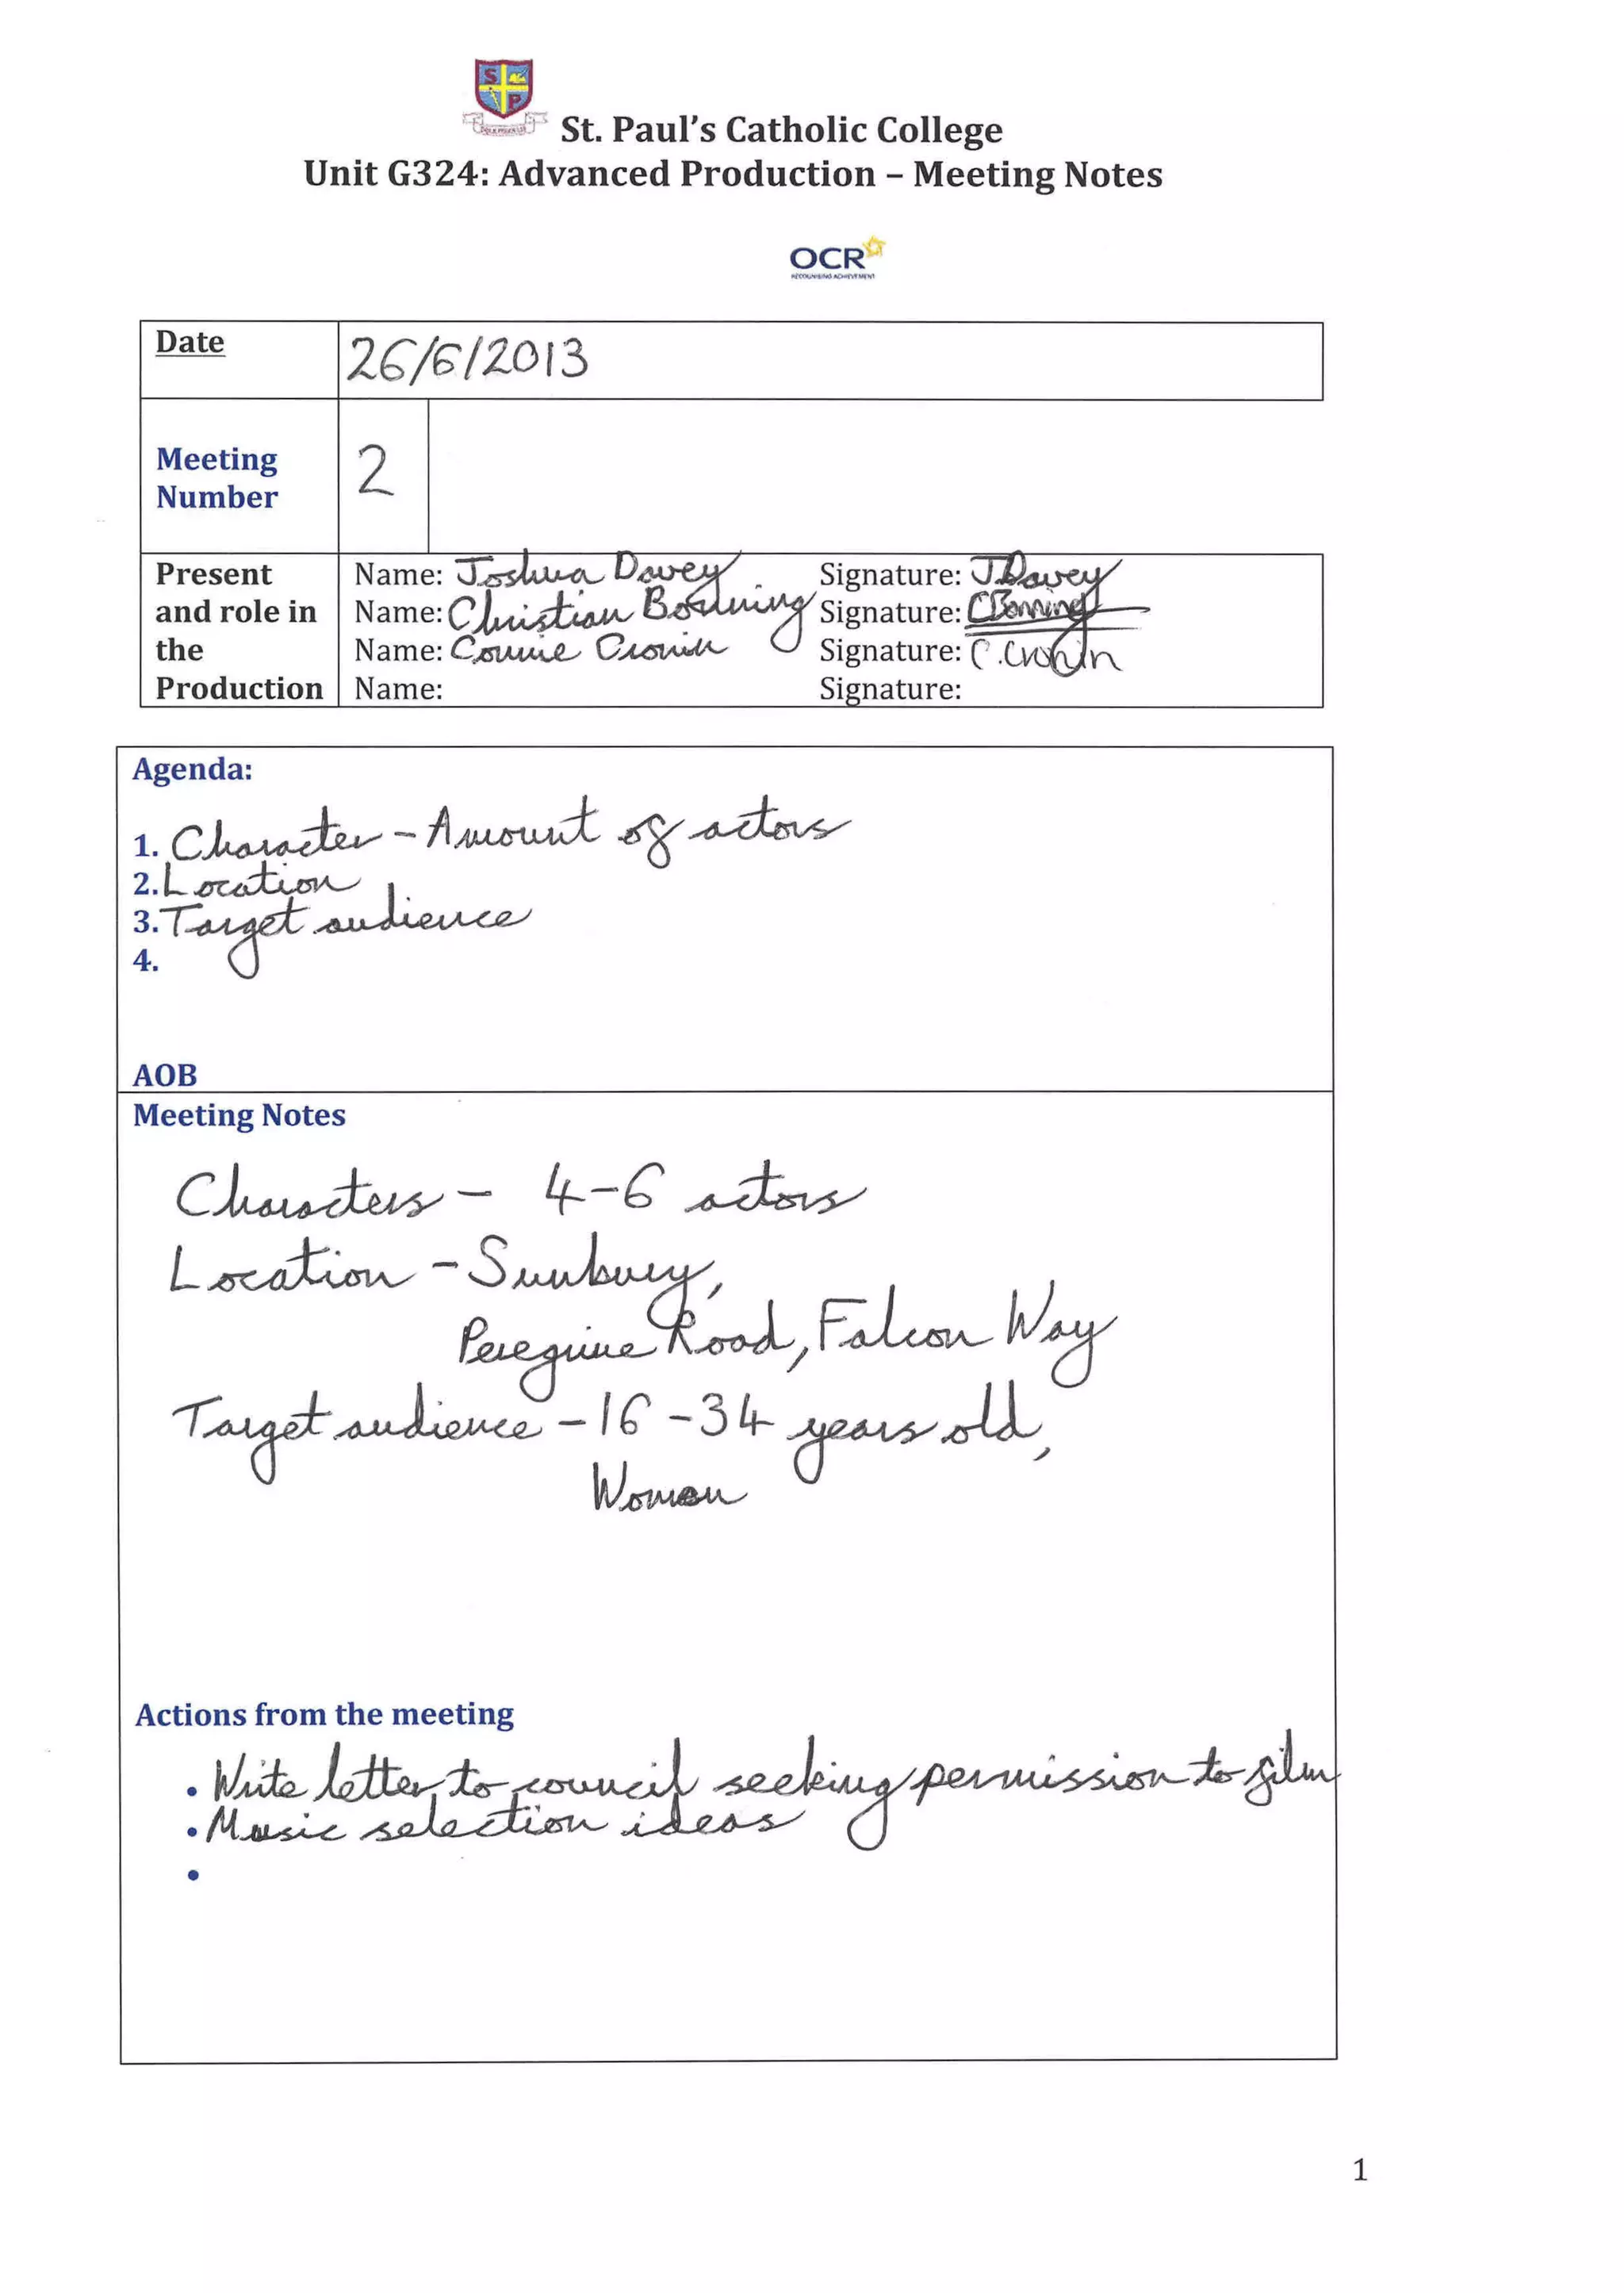 S P
St. Paul's Catholic College
Unit G324: Advanced Production – Meeting Notes
OCR
RECOGNISING ACHIEVEMENT
Date 26/6/2013
Meeting Number 2
Present and role in the Production
Name: Joshua Davey Signature: J.Davey
Name: Christian Signature: CBonning
Name: Connie Cronin Signature: C.Cronin
Name: Signature:
Agenda:
1. Character - Amount of actors
2. Location
3. Target audience
4.
AOB
Meeting Notes
Characters - 4-6 actors
Location - Sunbury,
Peregrine Road, Falcon Way
Target audience - 16 - 34 years old,
Women
Actions from the meeting
• Write letter to council seeking permission to film
• Music selection ideas
•
1